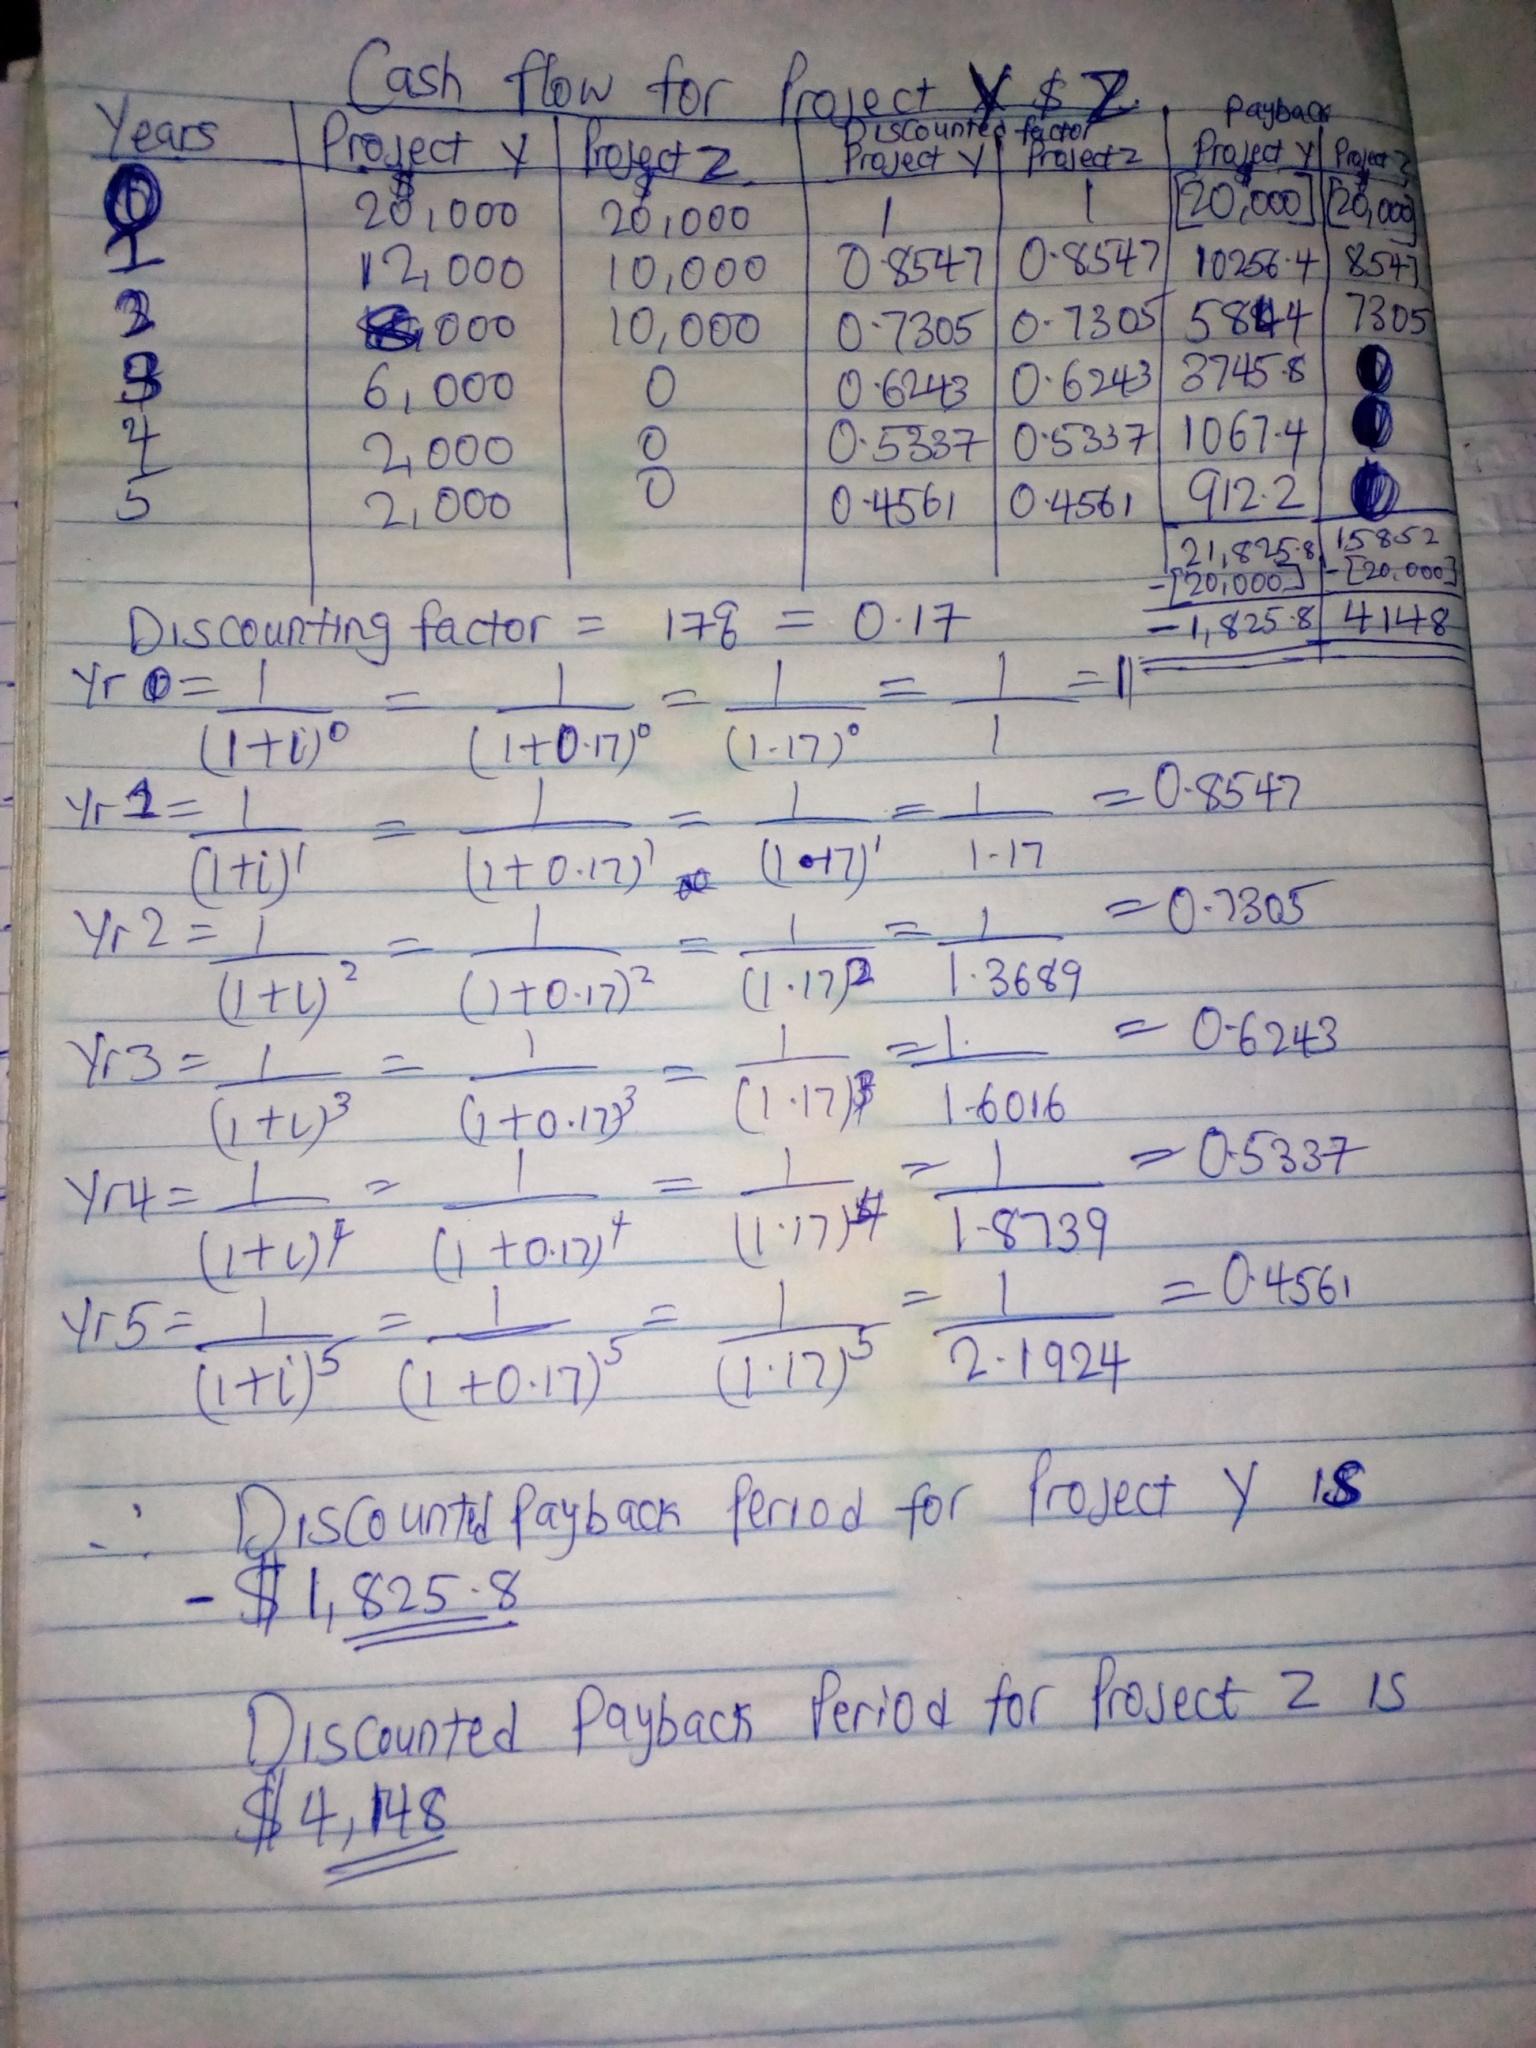 Cash flow for Project Y $ Z
Years Project Y Project Z Discounted factor Project Y Project Z Payback Project Y Project Z
0 $20,000 $20,000 1 1 [20,000] [20,000]
1 12,000 10,000 0.8547 0.8547 10256.4 8547
2 000 10,000 0.7305 0.7305 5844 7305
3 6,000 0 0.6243 0.6243 3745.8 0
4 2,000 0 0.5337 0.5337 1067.4 0
5 2,000 0 0.4561 0.4561 912.2 0
21,825.8 15852
-[20,000] -[20,000]
-1,825.8 4148
Discounting factor = 17% = 0.17
Yr 0 = 1/(1+i)⁰ = 1/(1+0.17)⁰ = 1/(1.17)⁰ = 1/1 = 1
Yr 1 = 1/(1+i)¹ = 1/(1+0.17)¹ = 1/(1.17)¹ = 1/1.17 = 0.8547
Yr 2 = 1/(1+i)² = 1/(1+0.17)² = 1/(1.17)² = 1/1.3689 = 0.7305
Yr 3 = 1/(1+i)³ = 1/(1+0.17)³ = 1/(1.17)³ = 1/1.6016 = 0.6243
Yr 4 = 1/(1+i)⁴ = 1/(1+0.17)⁴ = 1/(1.17)⁴ = 1/1.8739 = 0.5337
Yr 5 = 1/(1+i)⁵ = 1/(1+0.17)⁵ = 1/(1.17)⁵ = 1/2.1924 = 0.4561
∴ Discounted Payback Period for Project Y is
- $1,825.8
Discounted Payback Period for Project Z is
$4,148